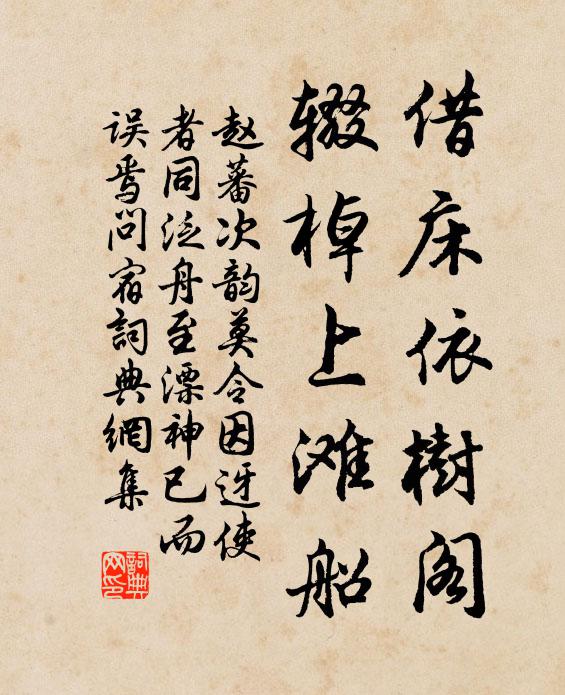 借床依樹阁
辍棹上滩船
赵蕃次韵莫令因迓使
者同泛舟至溧神已而
误焉问宿詞典網集
詞典
网印